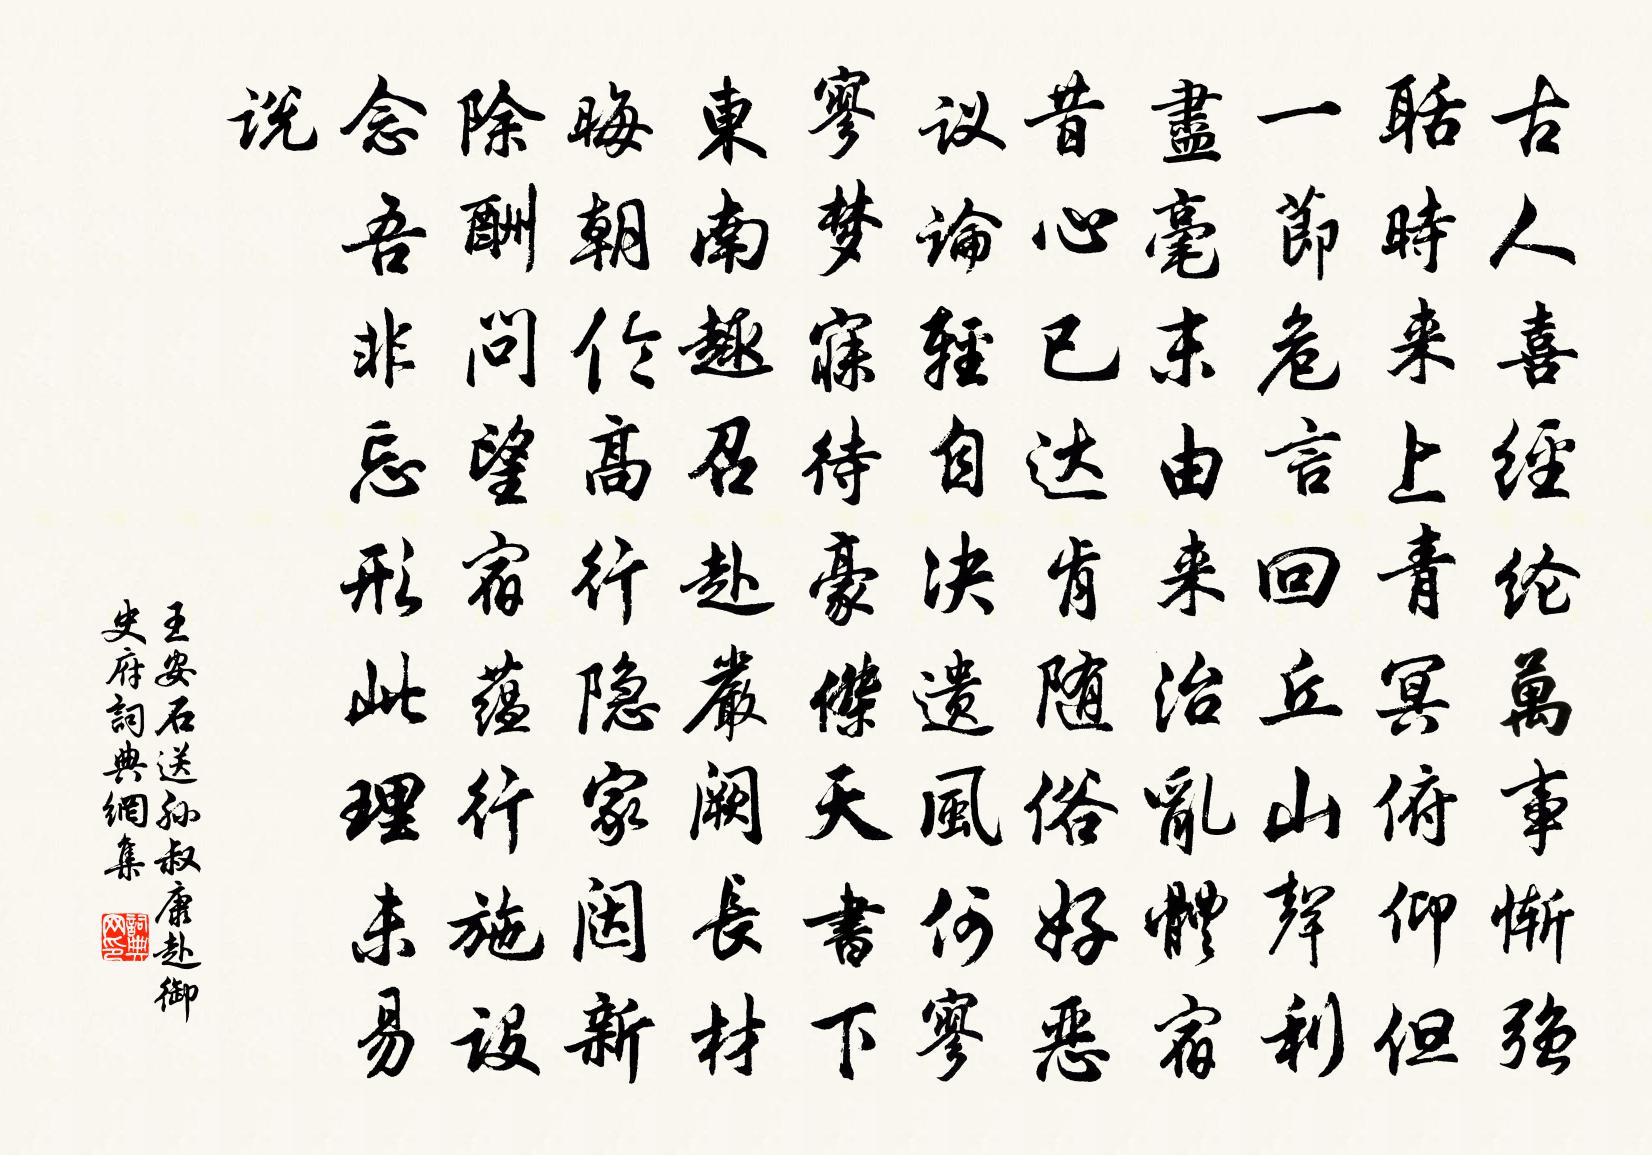 古人喜經纶萬事惭強
聒時来上青冥俯仰但
一節危言回丘山聲利
盡毫末由来治亂體宿
昔心已达肯随俗好恶
议論輕自决遗風何寥
寥梦寐待豪傑天書下
東南趣召赴嚴闕長材
晦朝高行隐家闼新
除酬問望宿蕴行施設
念吾非忘形此理未易
说
王安石送孙叔康赴御
史府詞典網集
詞典
网印